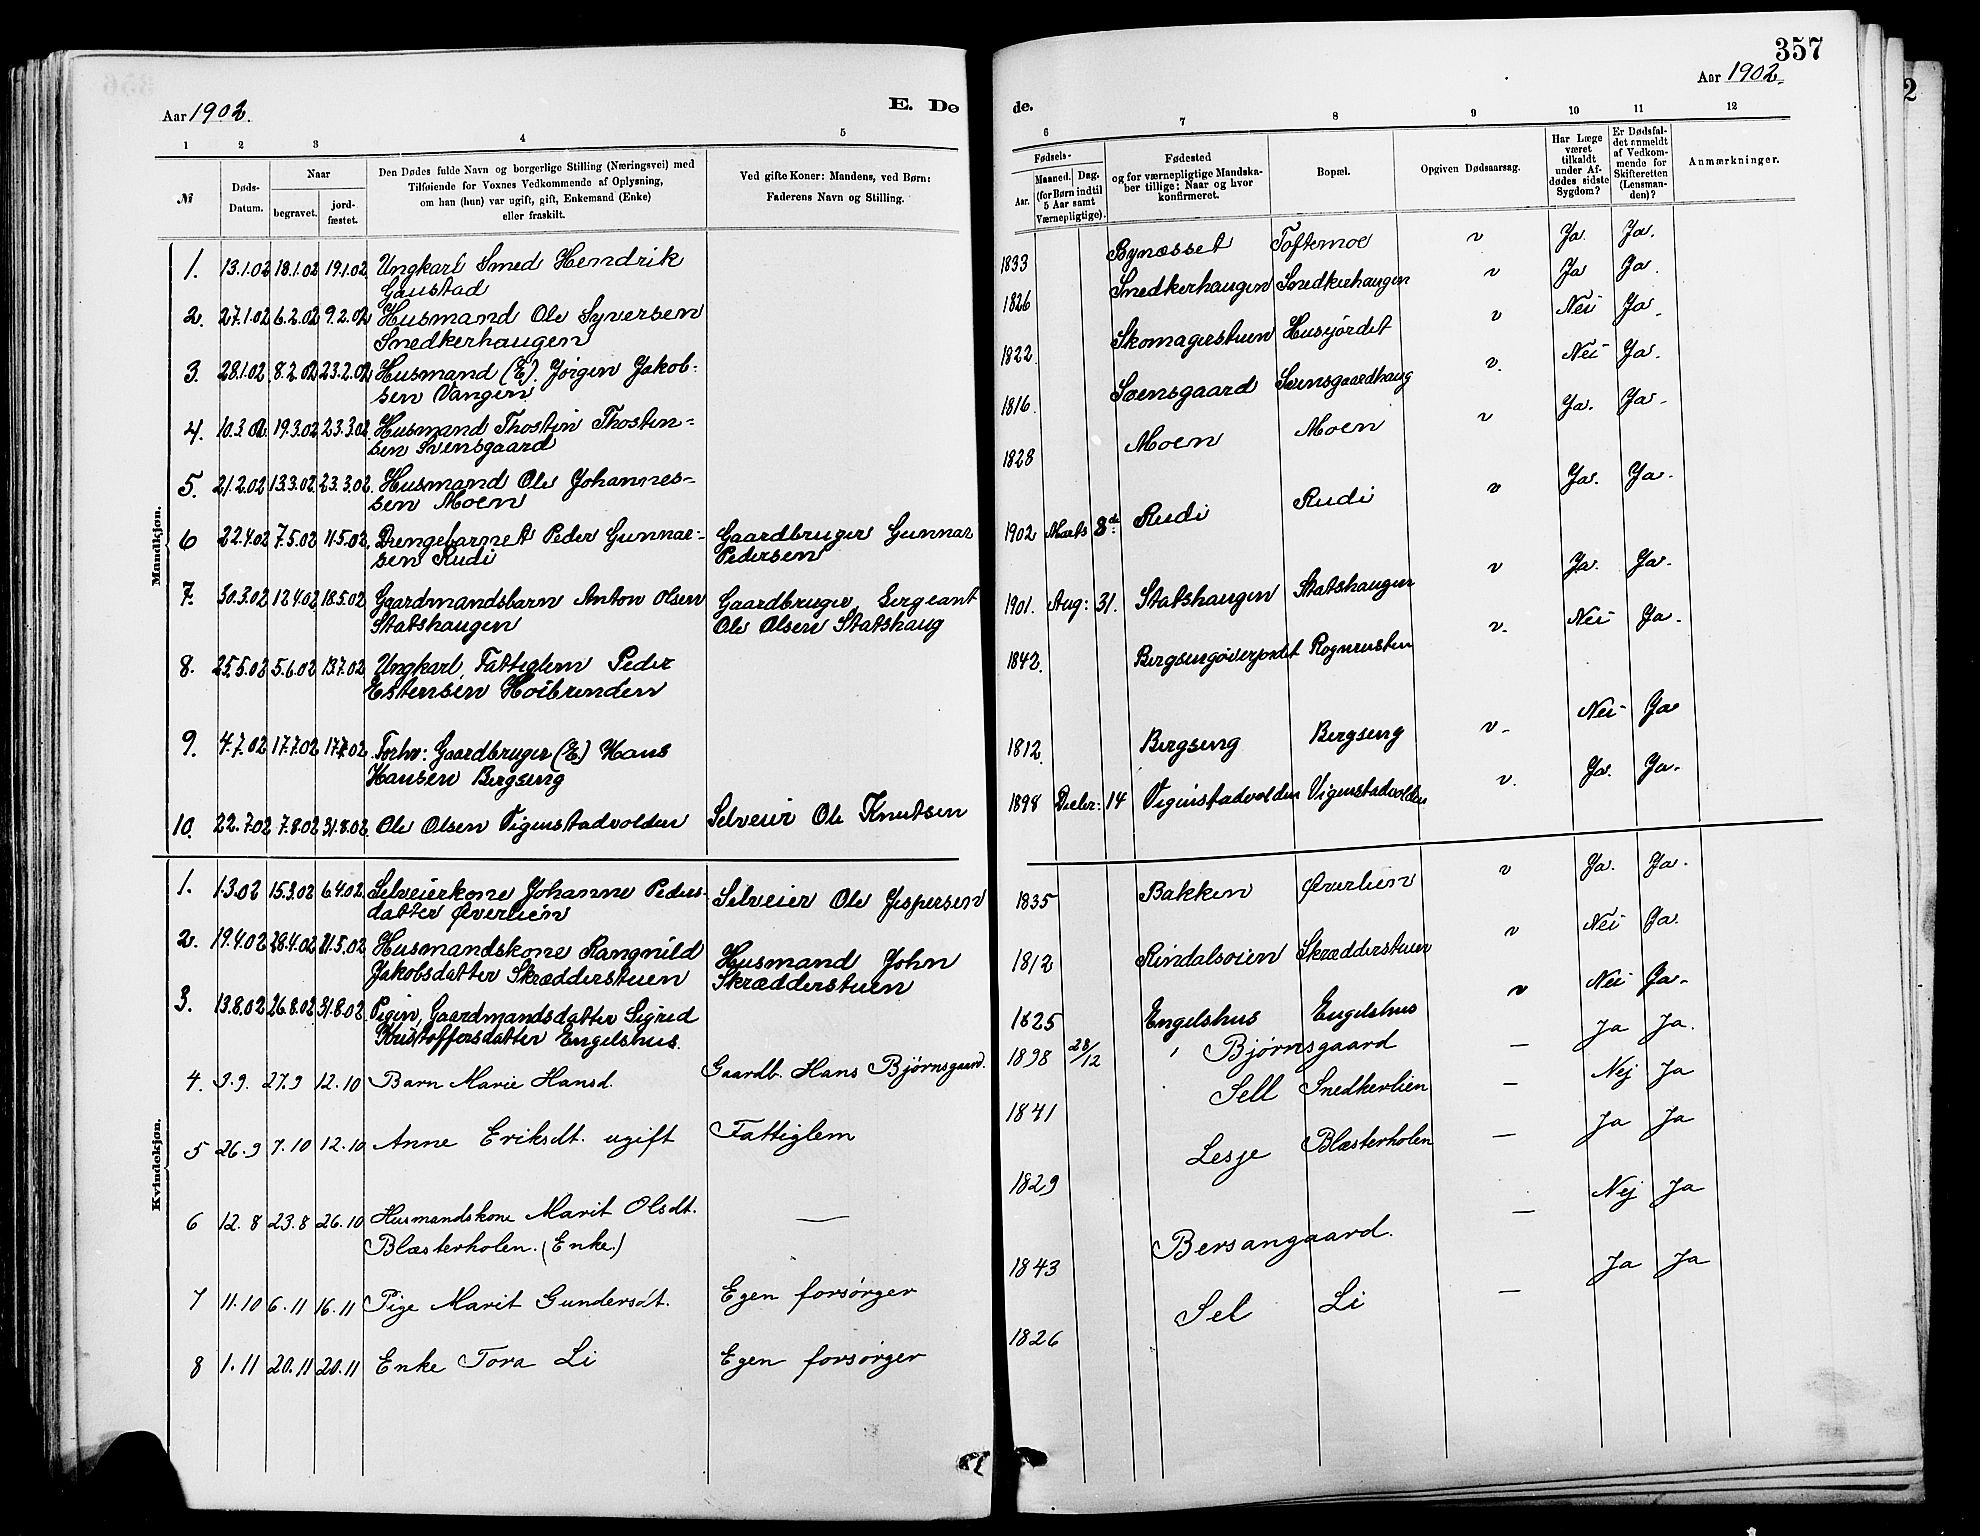 357
Aar 1902.
E. Dø
de.
Aar 1902.
1 2 3 4 5
6 7 8 9 10 11 12
№
Døds-
Datum.
Naar
begravet.
jord-
fæstet.
Den Dødes fulde Navn og borgerlige Stilling (Næringsvei) med
Tilføiende for Voxnes Vedkommende af Oplysning,
om han (hun) var ugift, gift, Enkemand (Enke)
eller fraskilt.
Ved gifte Koner: Mandens, ved Børn:
Faderens Navn og Stilling.
Fødsels-
Aar.
Maaned. Dag.
(for Børn indtil
5 Aar samt
Værnepligtige).
Fødested
og for værnepligtige Mandska-
ber tillige: Naar og hvor
konfirmeret.
Bopæl.
Opgiven Dødsaarsag.
Har Læge
været
tilkaldt
under Af-
dødes sidste
Sygdom?
Er Dødsfal-
det anmeldt
af Vedkom-
mende for
Skifteretten
(Lensman-
den)?
Anmærkninger.
Mandkjøn.
1. 13.1.02 18.1.02 19.1.02 Ungkarl Smed Hendrik
Gaustad
1833 Bynæsset Toftemoe v Ja. Ja.
2. 27.1.02 6.2.02 9.2.02 Husmand Ole Syversen
Snedkerhaugen
1826 Snedkerhaugen Snedkerhaugen v Ja Ja.
3. 28.1.02 8.2.02 23.2.02 Husmand (E). Jørgen Jakob-
sen Vangen
1822. Skomagerstuen Husjordet v Nei Ja.
4. 10.3.02 19.3.02 23.3.02 Husmand Thosten Thosten-
sen Svensgaard
1816. Svensgaard Svensgaardhaug v. Nei Ja.
5. 21.2.02 13.3.02 23.3.02. Husmand Ole Johannes-
sen Moen
1828 Moen Moen v Ja. Ja.
6 22.4.02 7.5.02 11.5.02. Drengebarnet Peder Gunnar-
sen Rudi
Gaardbruger Gunnar
Pedersen
1902 Marts 8de Rudi Rudi v Ja. Ja.
7. 30.3.02 12.4.02 18.5.02 Gaardmandsbarn Anton Olsen
Statshaugen
Gaardbruger, Sergeant
Ole Olsen Statshaug
1901. Aug: 31. Statshaugen Statshaugen v Ja. Ja.
8. 25.5.02 5.6.02 13.7.02 Ungkarl, Fattiglem Peder
Estensen Hoibrenden
1842. Rognrusten v. Nei Ja.
9. 4.7.02 17.7.02 17.7.02 Forhv: Gaardbruger (E) Hans
Hansen Bergseng
1812. Bergseng Bergseng v. Nei Ja
10. 22.7.02 7.8.02 31.8.02. Ole Olsen Vigenstadvolden
Selveier Ole Knutsen
1898 Decbr: 14 Vigenstadvolden Vigenstadvolden v. Ja. Ja.
Kvindekjøn.
1. 1.3.02 15.3.02 6.4.02 Selveierkone Johanne Peders-
datter Øverlien
Selveier Ole Jespersen
1835 Bakken Øverlien v Ja. Ja.
2. 19.4.02 28.4.02 11.5.02 Husmandskone Rangnild
Jakobsdatter Skrædderstuen
Husmand John
Skrædderstuen
1812 Rindalsoien Skrædderstuen v Nei Ja.
3. 13.8.02 26.8.02 31.8.02. Pigen, Gaardmandsdatter Sigrid
Kristoffersdatter Engelshus.
1825 Engelshus Engelshus v Nei Ja.
4. 3.9. 27.9 12.10 Barn Marie Hansd.
Gaardb. Hans Bjørnsgaard.
1898 28/12 Bjørnsgaard — Ja Ja.
5 26.9 7.10 12.10 Anne Eriksdt. ugift
Fattiglem
1841 Sell Snedkerlien — Nej Ja
6 12.8 23.8 26.10 Husmandskone Marit Olsdt.
Blæsterholen. (Enke.)
—
1829 Lesje Blæsterholen — Ja Ja
7 11.10 6.11 16.11 Pige Marit Gundersdt.
Egen forsørger
1843 Bersangaard. — Nej Ja
8 1.11 20.11 20.11 Enke Tora Li
Egen forsørger
1826 Sel Li — Ja Ja